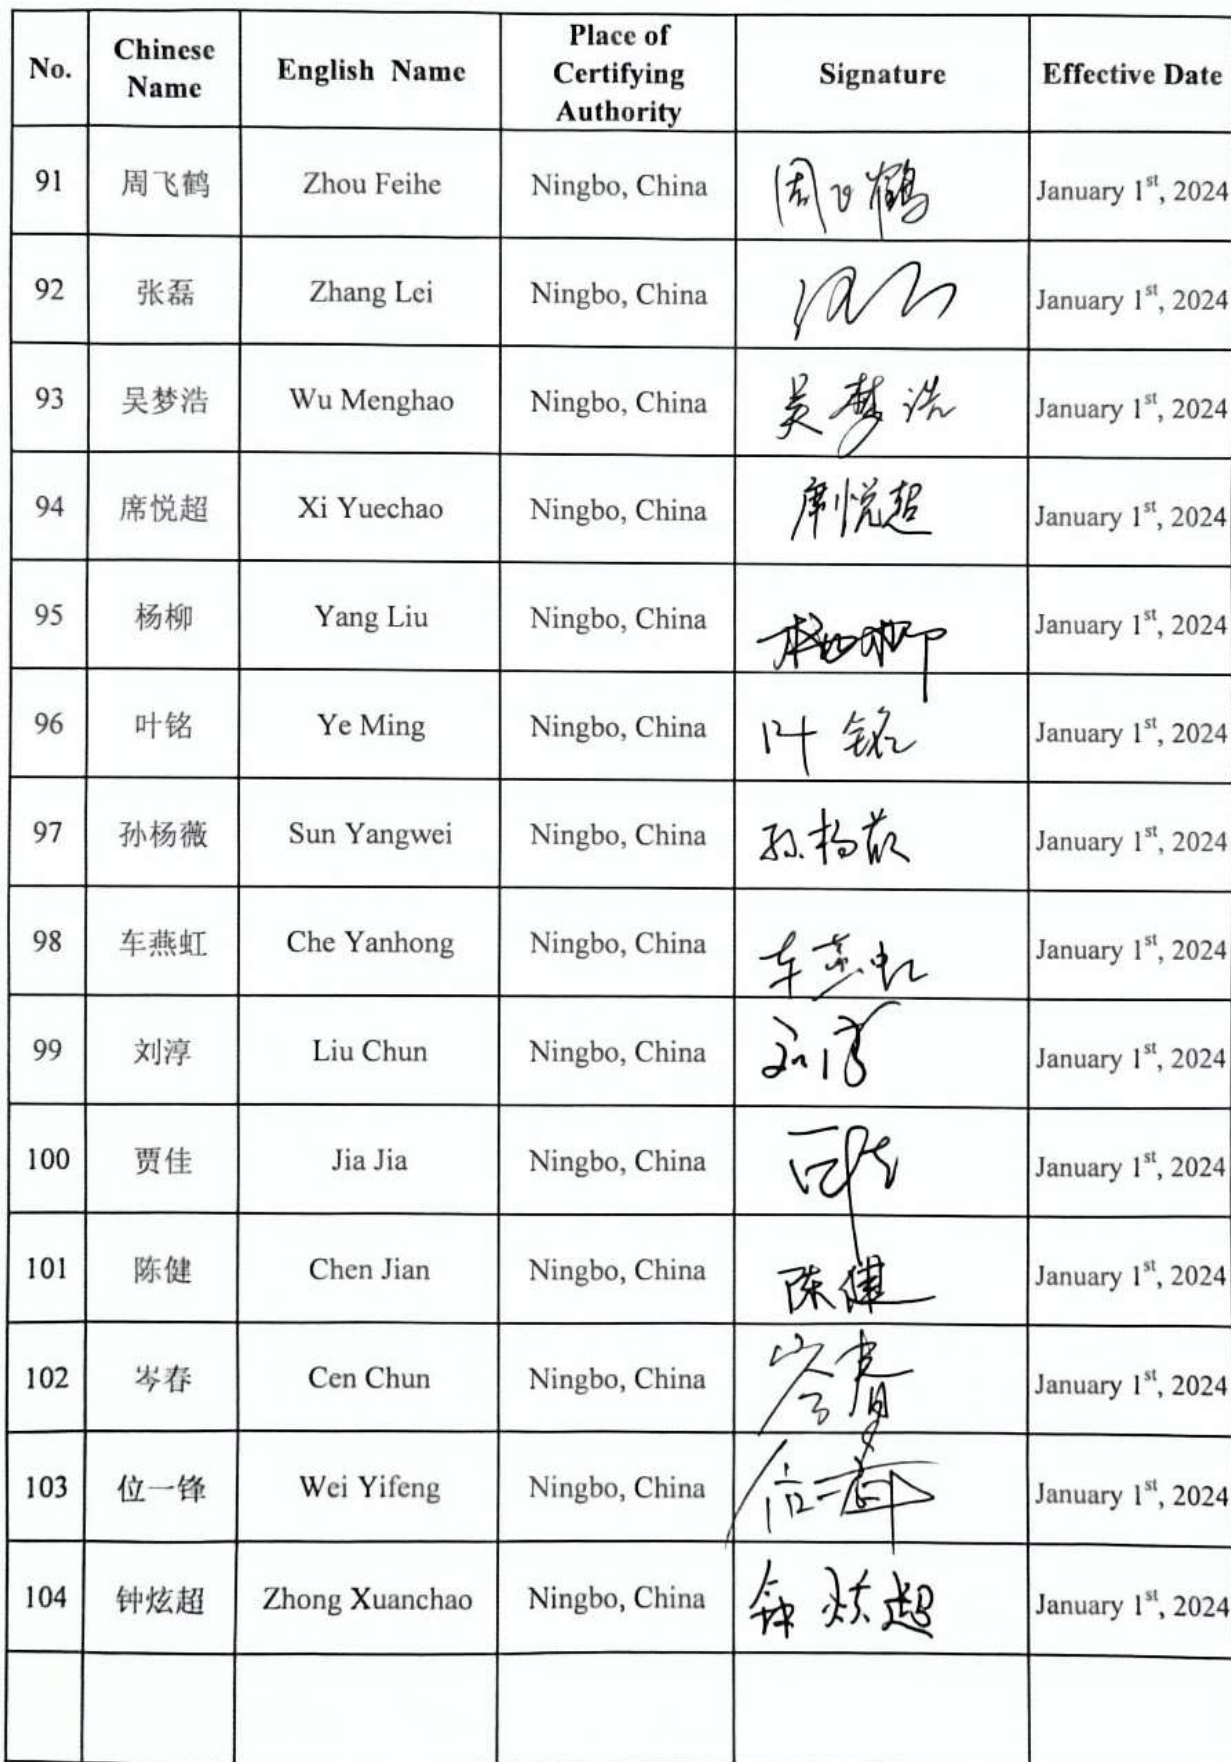 No. Chinese Name English Name Place of Certifying Authority Signature Effective Date
91 周飞鹤 Zhou Feihe Ningbo, China 周飞鹤 January 1st, 2024
92 张磊 Zhang Lei Ningbo, China January 1st, 2024
93 吴梦浩 Wu Menghao Ningbo, China 吴梦浩 January 1st, 2024
94 席悦超 Xi Yuechao Ningbo, China 席悦超 January 1st, 2024
95 杨柳 Yang Liu Ningbo, China 杨柳 January 1st, 2024
96 叶铭 Ye Ming Ningbo, China 叶铭 January 1st, 2024
97 孙杨薇 Sun Yangwei Ningbo, China 孙杨薇 January 1st, 2024
98 车燕虹 Che Yanhong Ningbo, China 车燕虹 January 1st, 2024
99 刘淳 Liu Chun Ningbo, China 刘淳 January 1st, 2024
100 贾佳 Jia Jia Ningbo, China January 1st, 2024
101 陈健 Chen Jian Ningbo, China 陈健 January 1st, 2024
102 岑春 Cen Chun Ningbo, China 岑春 January 1st, 2024
103 位一锋 Wei Yifeng Ningbo, China 位一锋 January 1st, 2024
104 钟炫超 Zhong Xuanchao Ningbo, China 钟炫超 January 1st, 2024